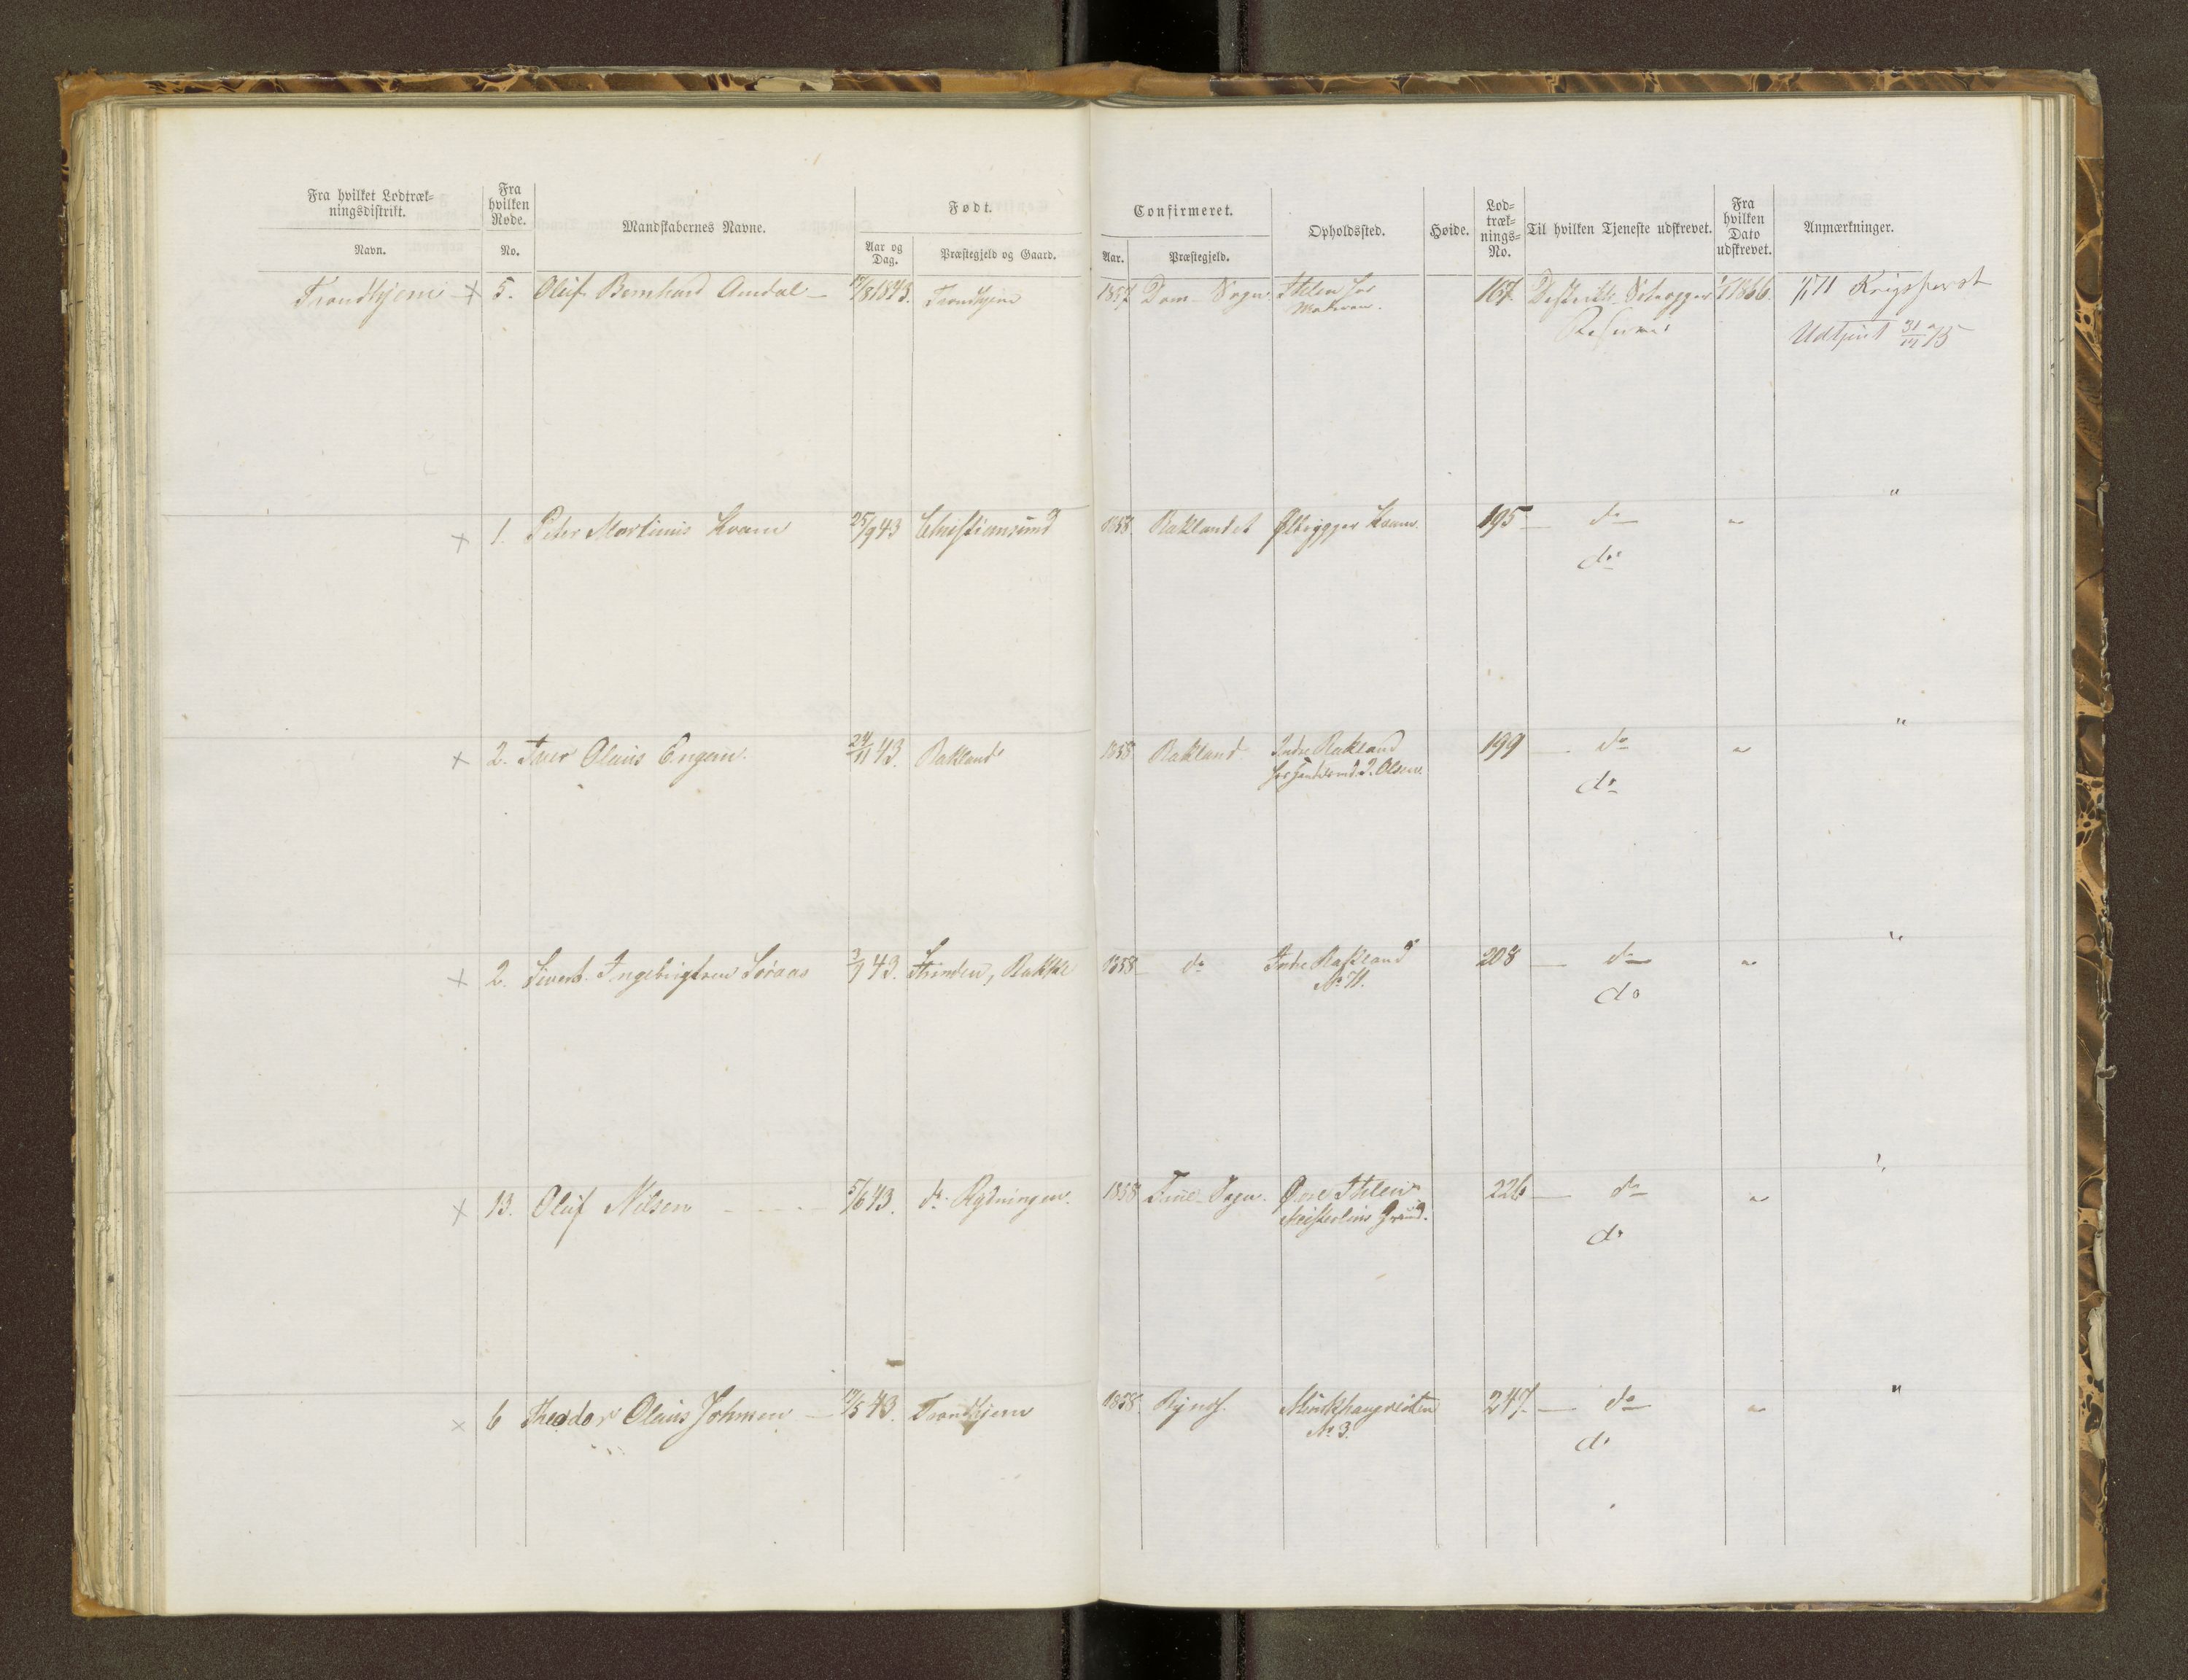 Fra hvilket Lodtræk-
ningsdistrikt.
Navn.
Fra
hvilken
Rode.
No.
Mandskabernes Navne.
Født.
Aar og
Dag.
Præstegjeld og Gaard.
Confirmeret.
Aar.
Præstegjeld.
Opholdssted.
Høide.
Lod-
træk-
nings-
No.
Til hvilken Tjeneste udskrevet.
Fra
hvilken
Dato
udskrevet.
Anmærkninger.
Trondhjem × 5. Oluf Bernhard Amdal 17/8 1843. Trondhjem 1857 Dom-Sogn Ihlen hos 167. 1866. 1/1 71
Reserve Udtjent 31/12 75
× 1. Peter Martinus Kvam 25/9 43 Christiansund 1858 Baklandet Ølbrygger Kvam. 195 do " "
do
× 2. Iver Olaus Engan. 24/11 43. Bakland 1858 Bakland Indre Bakland 199 do " "
Olsen
do
× 2. Sivert Ingebrigtsen 3/9 43. Strinden, 1858 do Indre Bakland 208 do " "
No 71. do
× 13. Oluf Nilsen 5/6 43. do Rydningen. 1858 Frue-Sogn. Øvre Ihlen 226 do " "
Grund. do
× 6 Theodor Olaus Johnsen 17/5 43. Trondhjem 1858. 247. do " "
No 3. do